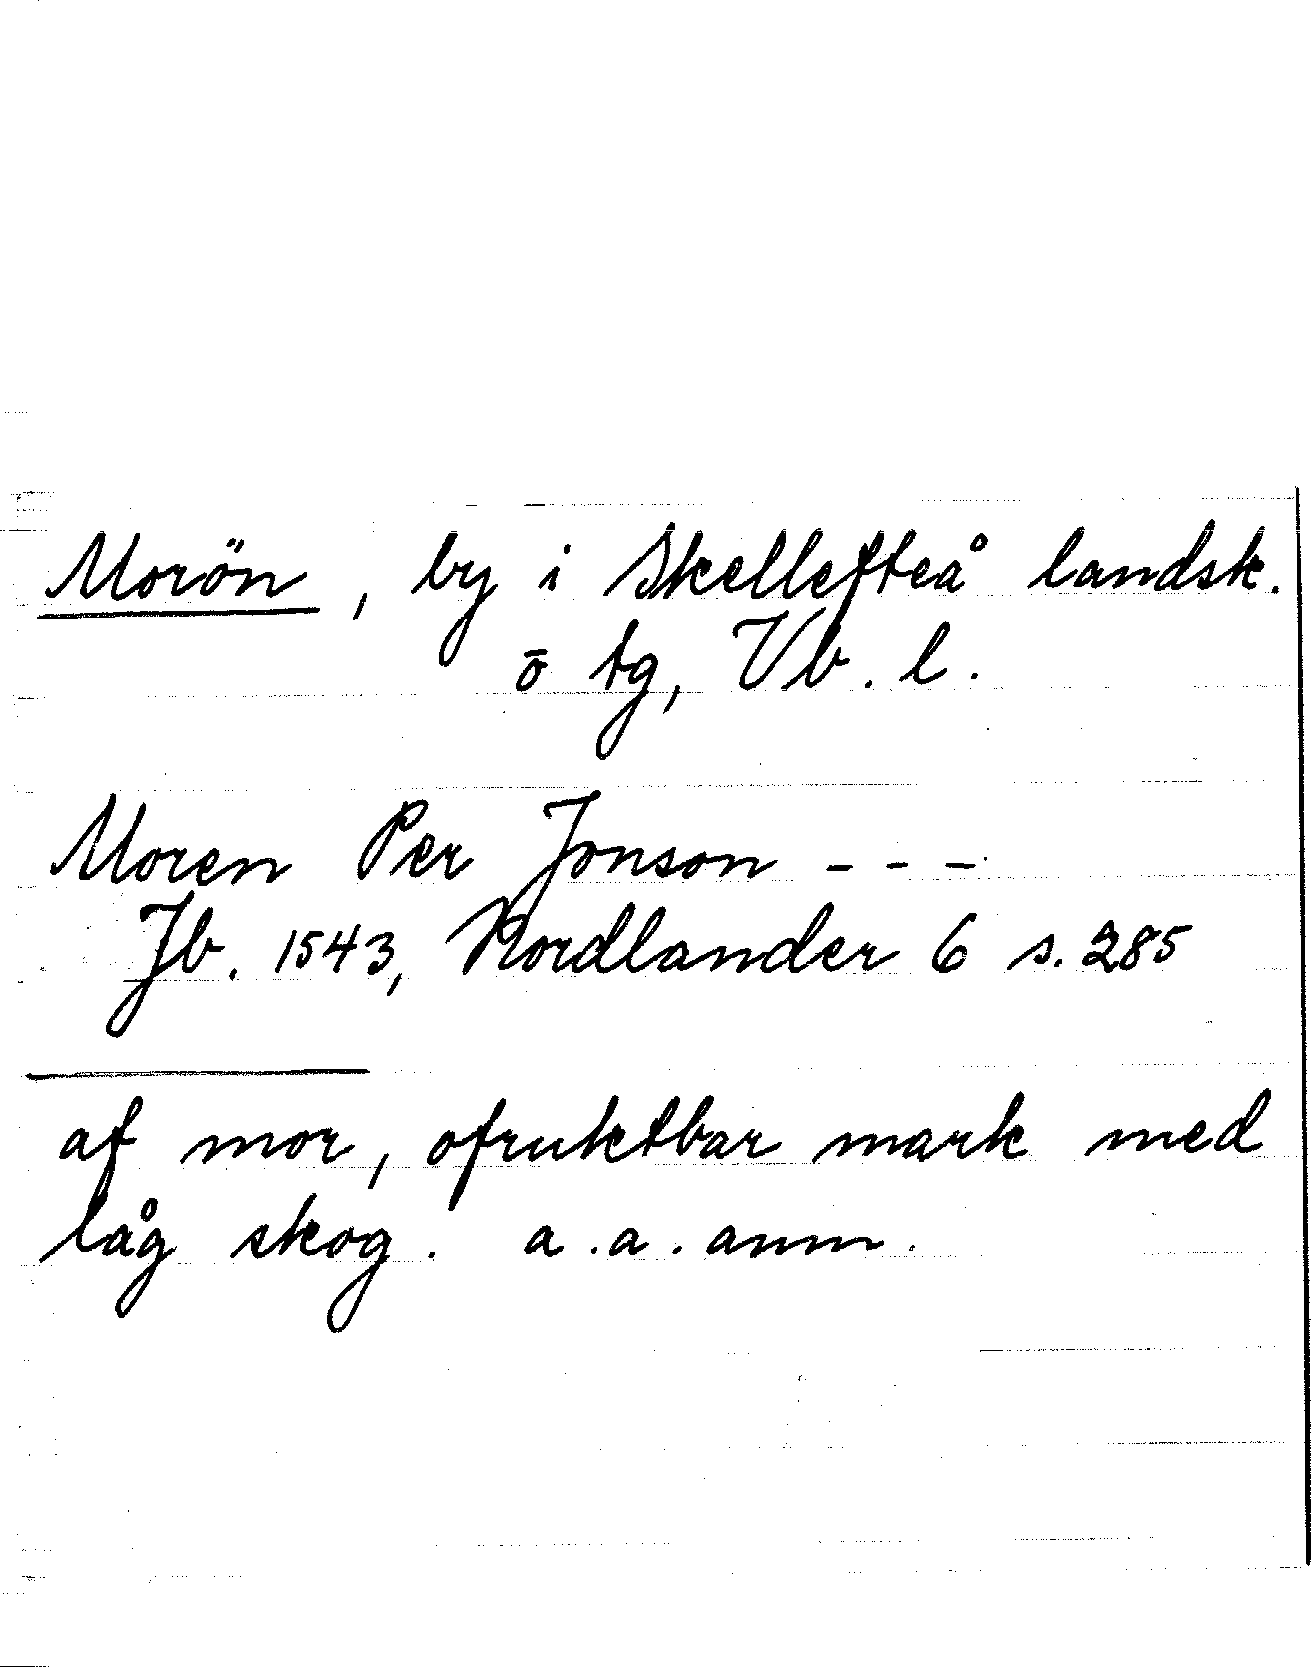 Morön, by i Skellefteå landsk.
ō tg, Vb. l.
Moren Per Jonson - - -
Jb. 1543, Nordlander 6 s. 285
af mor, ofruktbar mark med
låg skog. a.a. anm.